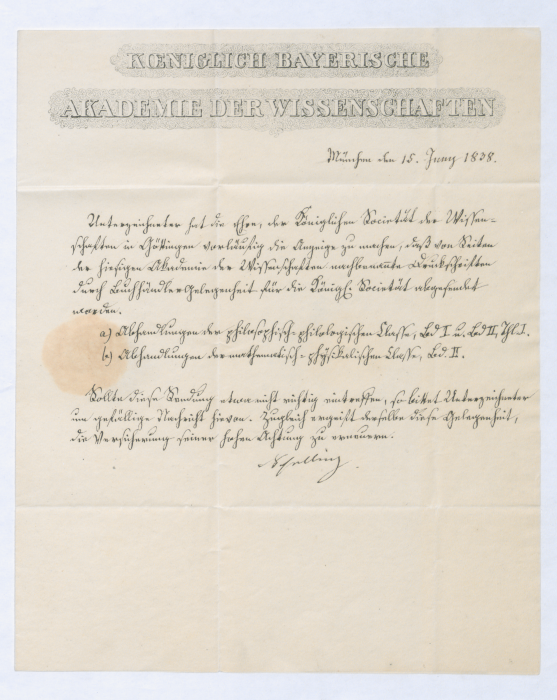 KŒNIGLICH BAYERISCHE
AKADEMIE DER WISSENSCHAFTEN
München den 15. Juny 1838.
Unterzeichneter hat die Ehre, der Königlichen Societät der Wissen-
schaften in Göttingen vorläufig die Anzeige zu machen, daß von Seiten
der hiesigen Akademie der Wissenschaften nachbenannte Druckschriften
durch Buchhändler Gelegenheit für die Königl. Societät abgesendet
worden.
a) Abhandlungen der philosophisch-philologischen Classe, Bd I u. Bd II, Thl. I.
b) Abhandlungen der mathematisch-physikalischen Classe, Bd. II.
Sollte diese Sendung etwa nicht richtig eintreffen, so bittet Unterzeichneter
um gefällige Nachricht hievon. Zugleich ergreift derselbe diese Gelegenheit,
die Versicherung seiner hohen Achtung zu erneuern.
Schelling.